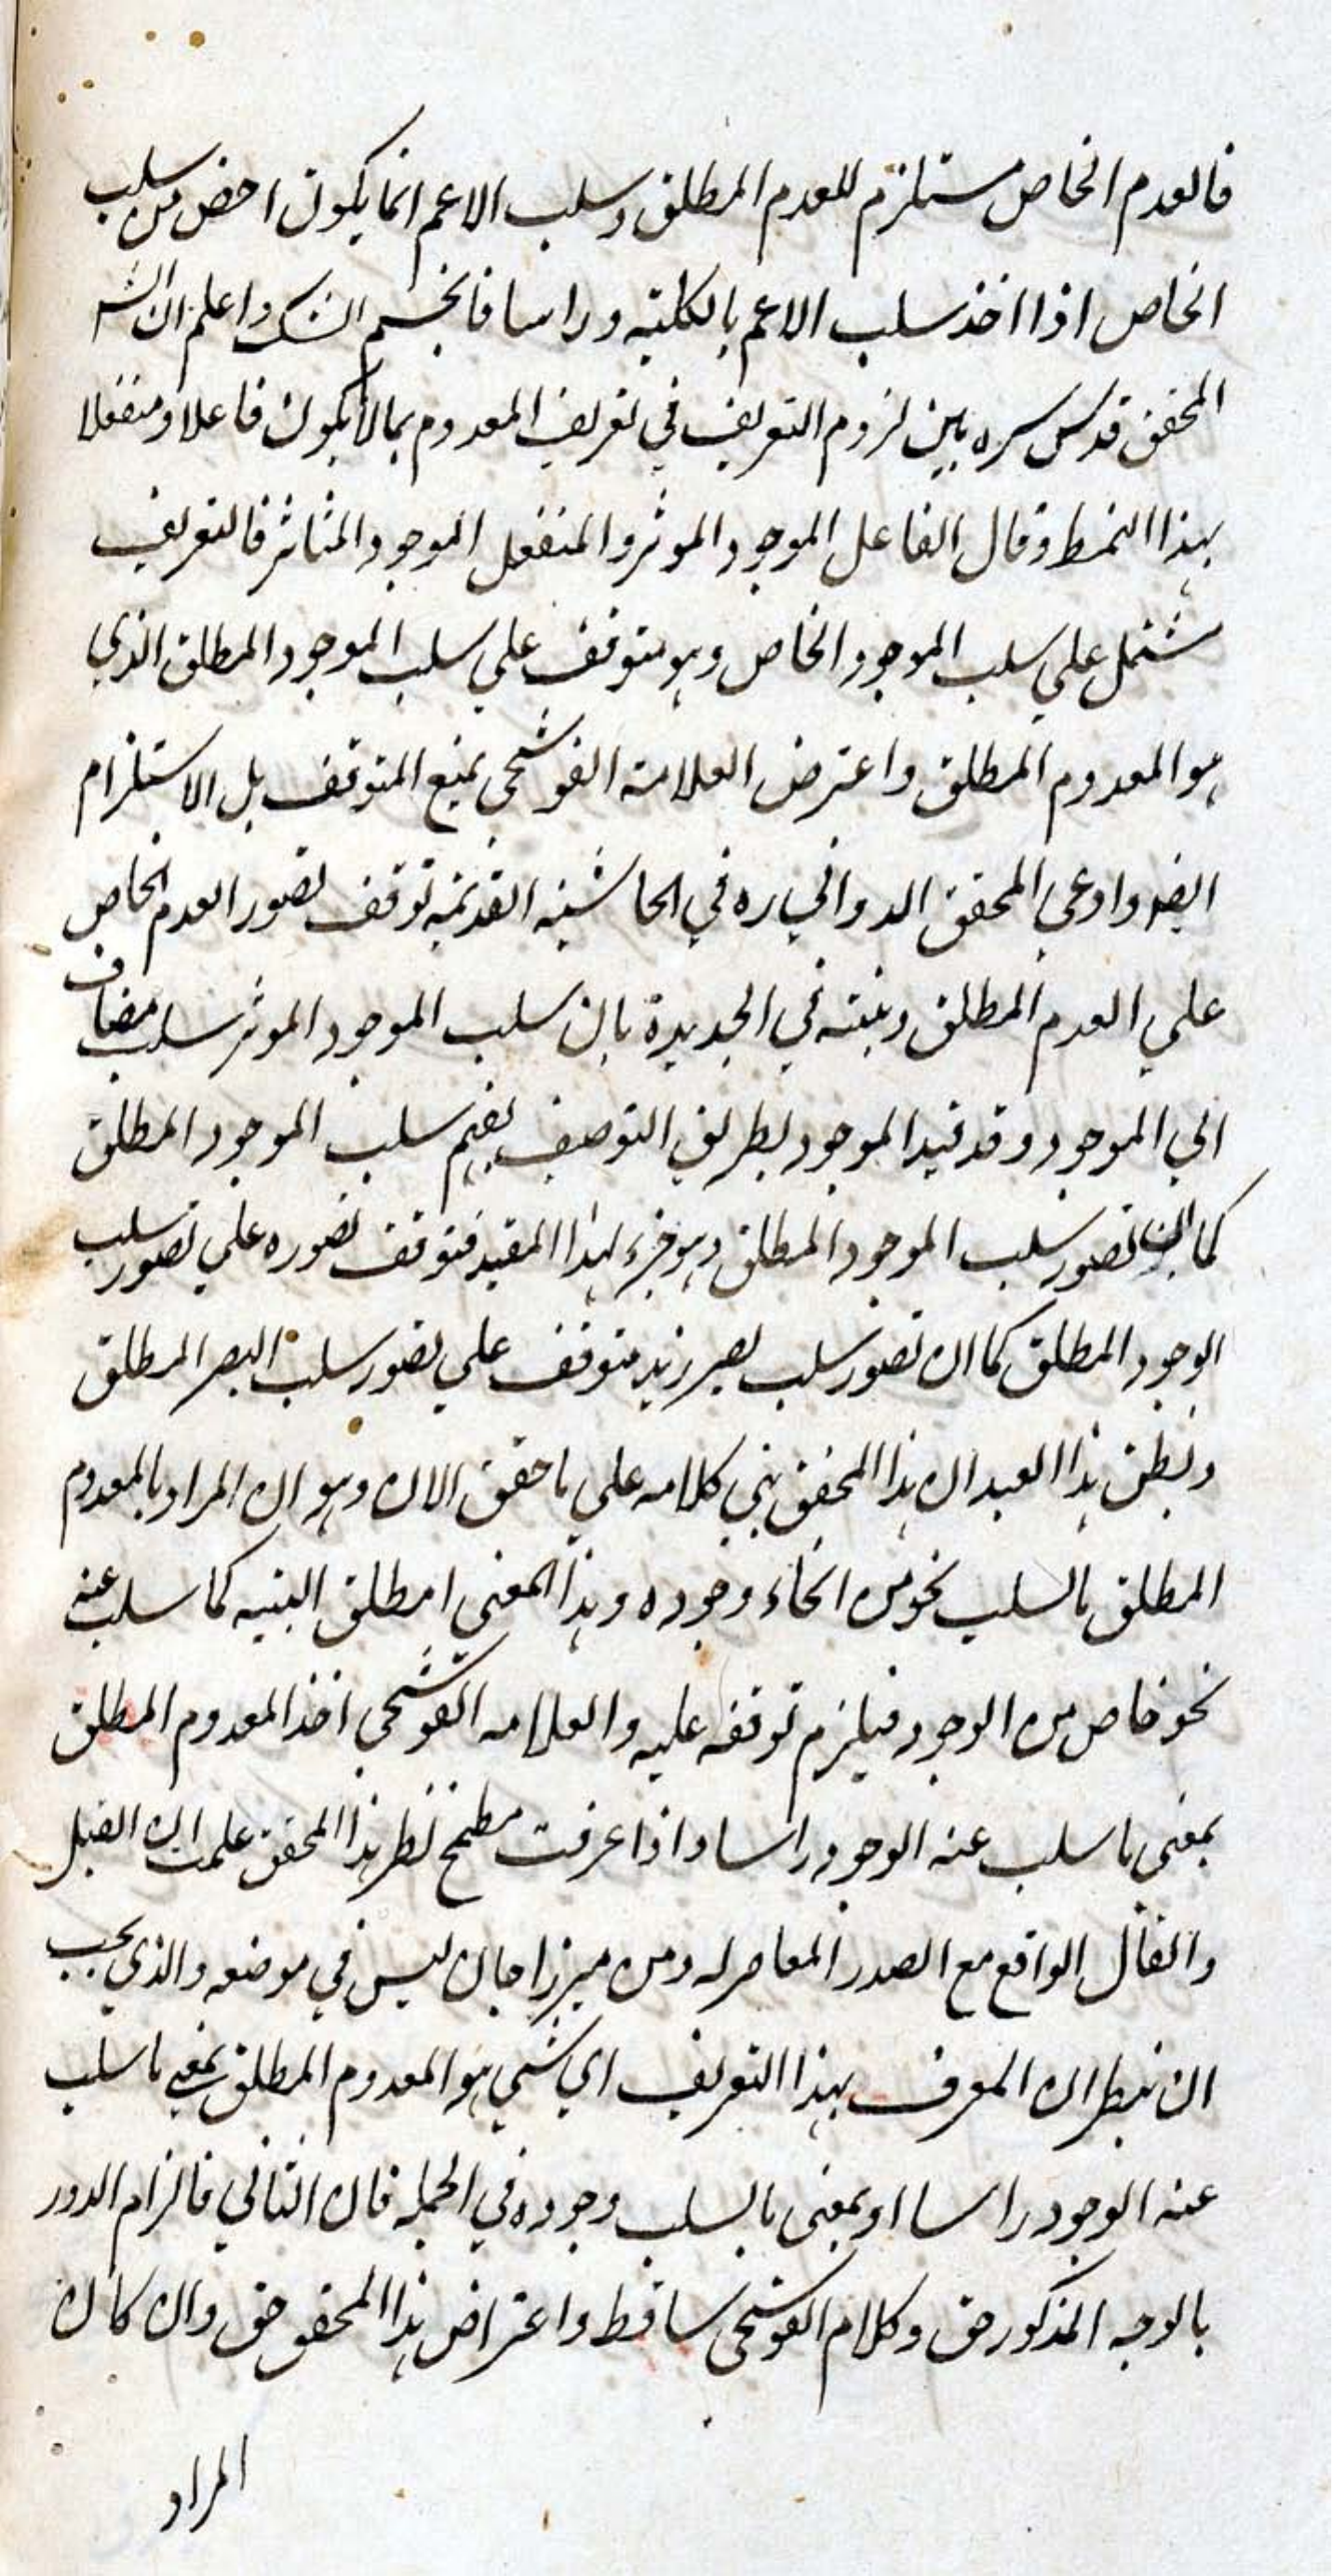 فالعدم الخاص مستلزم للعدم المطلق وسلب الاعم انما يكون اخص من سلب
الخاص اذا اخذ سلب الاعم بالكلية وراسا فانحسم الشك واعلم ان الش
المحقق قدس سره بين لزوم التعريف في تعريف المعدوم بما لا يكون فاعلا ومنفعلا
بهذا النمط وقال الفاعل الموجود الموثر والمنفعل الموجود المتاثر فالتعريف
مشتمل علي سلب الموجود الخاص وهو متوقف علي سلب الموجود المطلق الذي
هو المعدوم المطلق واعترض العلامة القوشجي بمنع المتوقف بل الاستلزام
ايضا وادعي المحقق الدواني ره في الحاشية القديمة توقف تصور العدم الخاص
علي العدم المطلق وبينه في الجديدة بان سلب الموجود الموثر سلب مضاف
الي الموجود وقد قيد الموجود بطريق التوصيف يفهم سلب الموجود المطلق
كما ان تصور سلب الموجود المطلق وهو جزء لهذا المقيد فتوقف تصوره علي تصور سلب
الوجود المطلق كما ان تصور سلب بصر زيد متوقف علي تصور سلب البصر المطلق
ويظن هذا العبد ان هذا المحقق بني كلامه علي ما حقق الان وهو ان المراد بالمعدوم
المطلق ما لسلب نحو من انحاء وجوده وهذا المعني مطلق البتيه كما سلب عنه
نحو خاص من الوجود فيلزم توقفه عليه والعلامه القوشجي اخذ المعدوم المطلق
بمعني ما سلب عنه الوجود راسا واذا عرفت مطمح نظر هذا المحقق علمت ان القيل
والقال الواقع مع الصدر المعاصر له ومن ميرزا جان ليس في موضعه والذي يجب
ان ينظر ان المعرف بهذا التعريف اي شي هو المعدوم المطلق بمعني ما سلب
عنه الوجود راسا او بمعني ما لسلب وجوده في الجمله فان الثاني فالزام الدور
بالوجه المذكور حق وكلام القوشجي ساقط واعتراض هذا المحقق حق وان كان
المراد